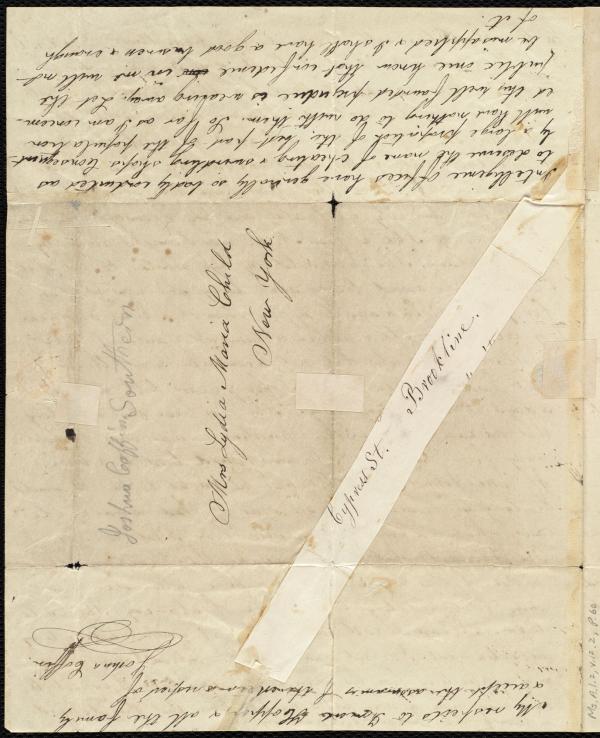 Intelligence Offices have generally so badly conducted as
to deserve the name of cheating & swindling shops. Consequent-
ly a large proportion of the best part of the population
will have nothing to do with them. So far as I am concern-
ed this well founded prejudice is wearing away. Let the
public once know that confidence in me will not
be misapplied & I shall have a good business & enough
of it.
My respects to Hopper & all the family
& accept the assurances of the respect of
Joshua Coffin.
Mrs Lydia Maria Child
New York
Joshua Coffin Southern
Cypress St. Brookline.
Ms. A.1.2, v.12.2, p.60